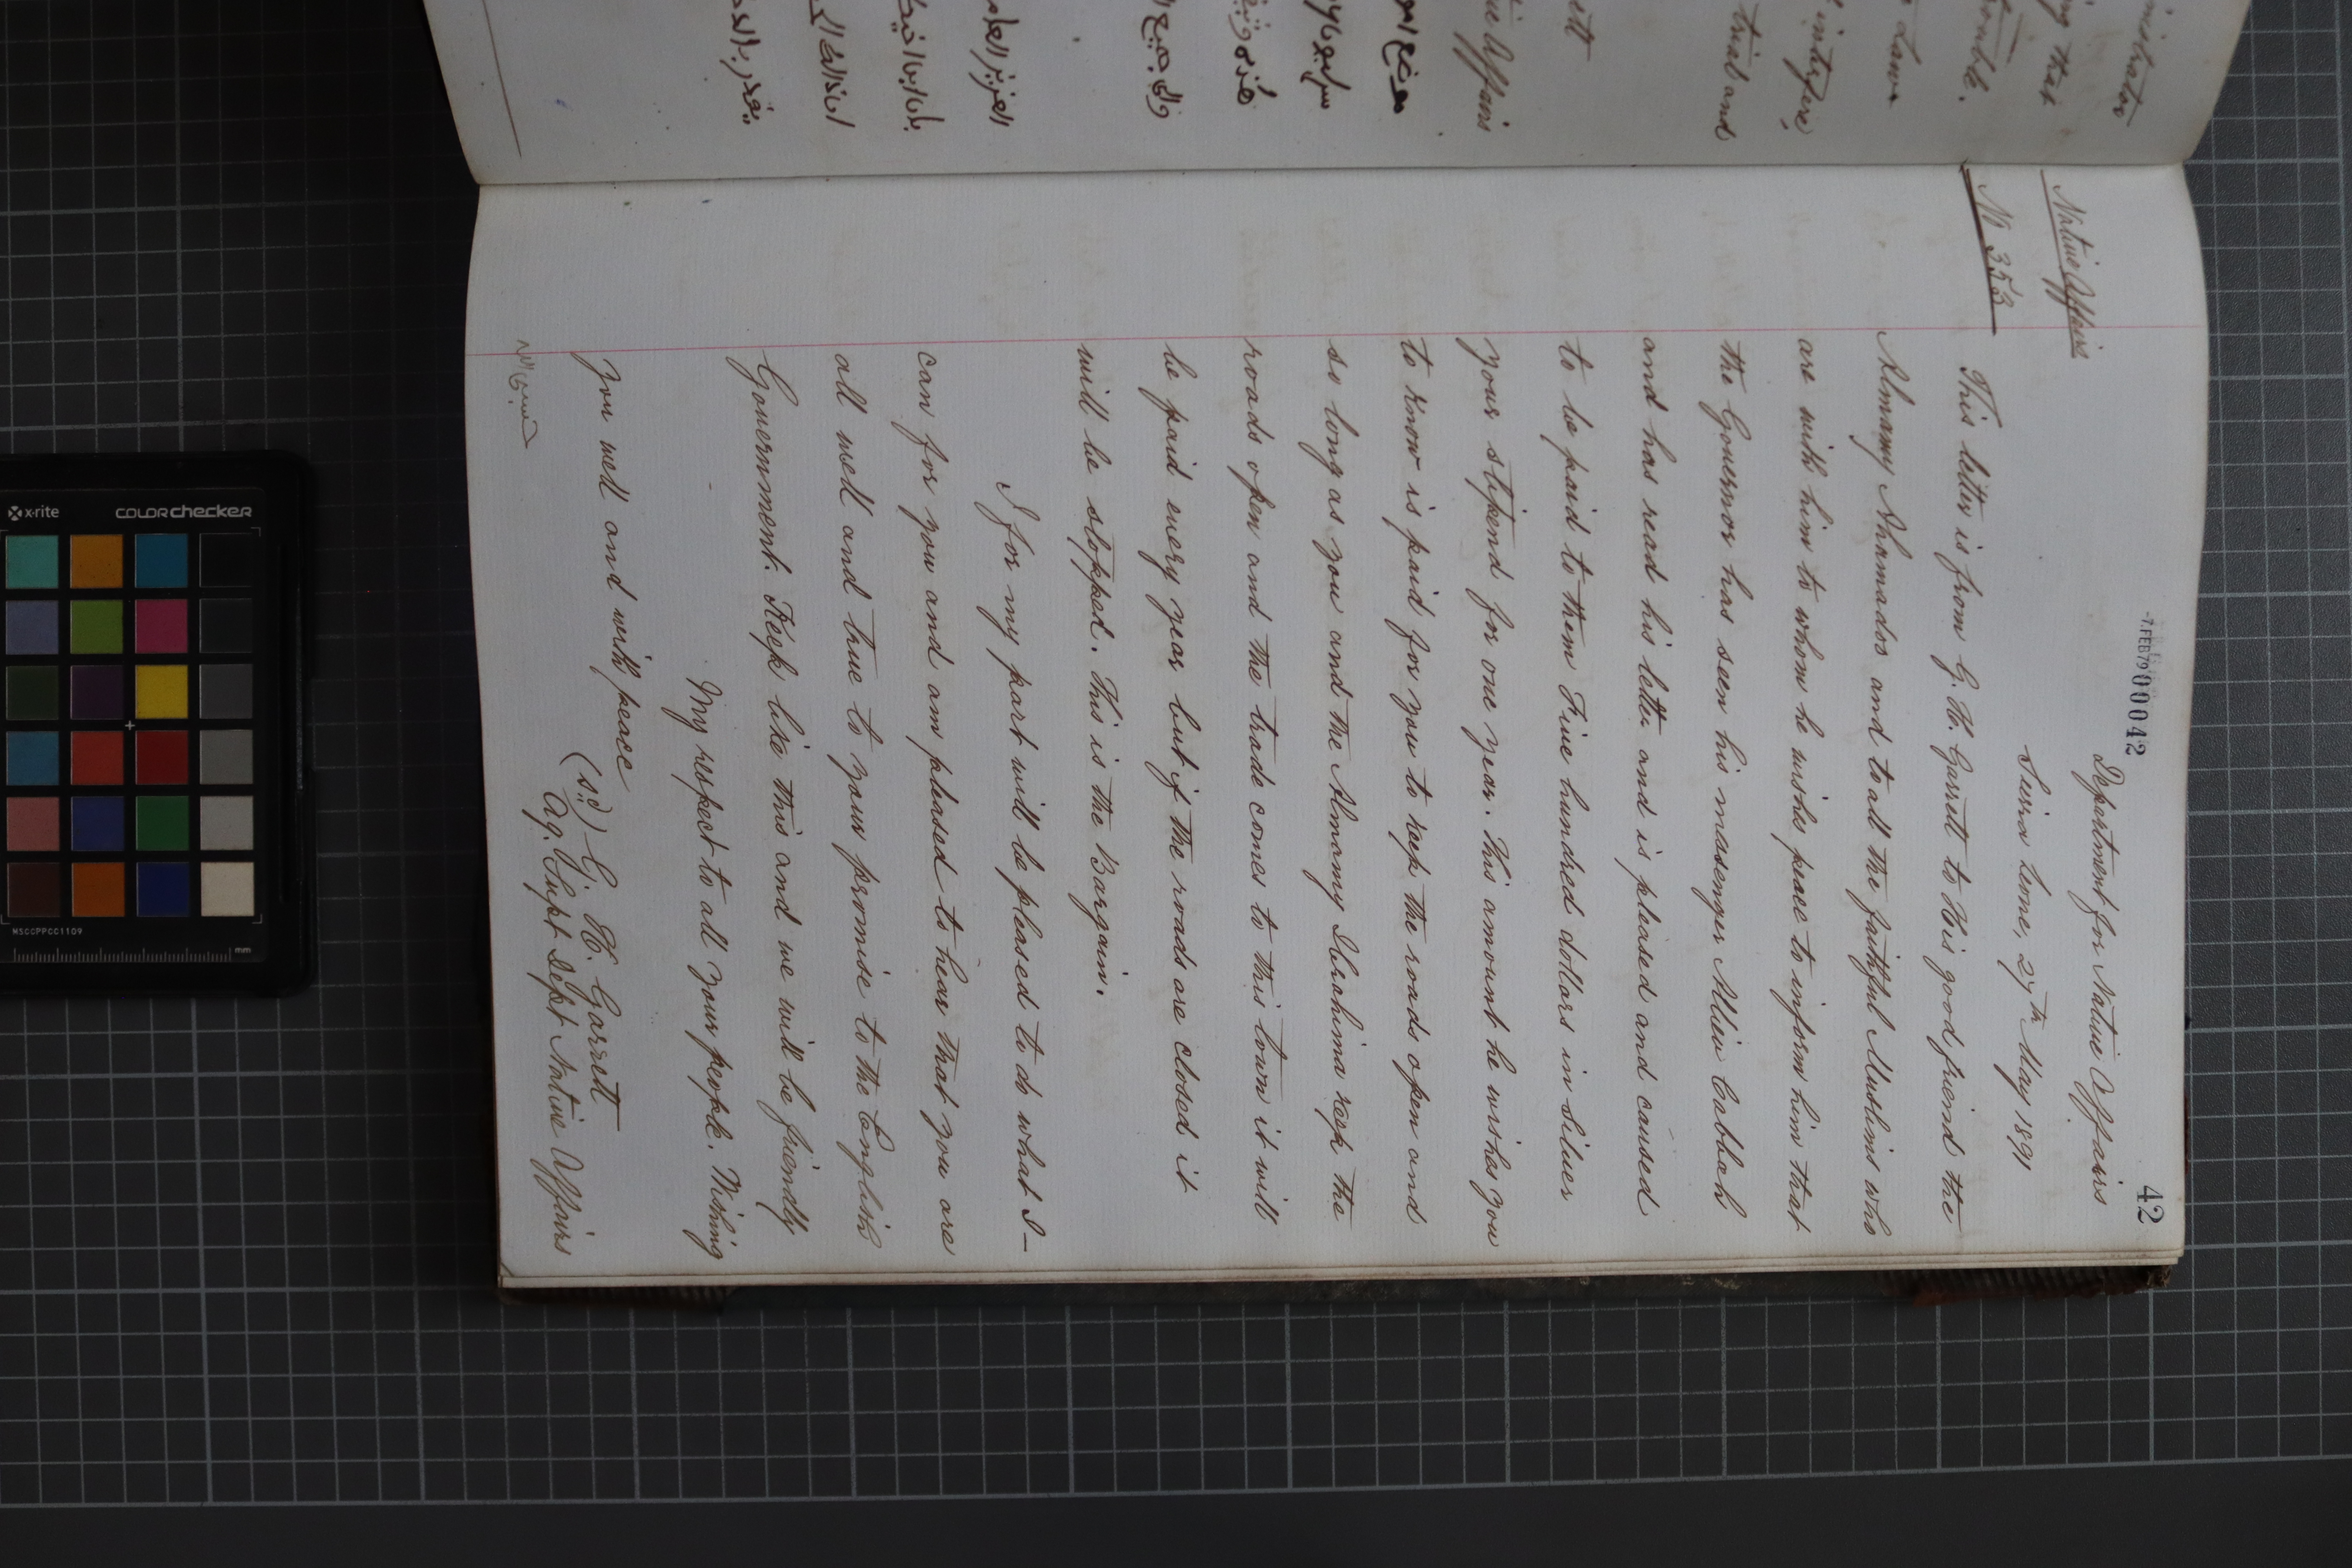 42
-7.FEB79 000042
Native Affairs
No 353
Department for Native Affairs
Sierra Leone, 27th May 1891
This letter is from G. H. Garrett to His good friend the
Almamy Ahamadoo and to all the faithful Muslims who
are with him to whom he wishes peace to inform him that
the Governor has seen his messenger Alliu Cabbah
and has read his letter and is pleased and caused
to be paid to them Five hundred dollars in silver
your stipend for one year. This amount he wishes you
to know is paid for you to keep the roads open and
so long as you and the Almamy Ibrahima keep the
roads open and the trade comes to this town it will
be paid every year but if the roads are closed it
will be stopped. This is the Bargain.
I for my part will be pleased to do what I
can for you and am pleased to hear that you are
all well and true to your promise to the English
Government. Keep like this and we will be friendly
My respect to all your people. Wishing
you well and with peace
(sd) G. H. Garrett
Ag. Supt Dept Native Affairs
ministrator
ng that
trouble.
Law
interfere,
trial and
ve Affairs
x-rite
colorchecker
MSCCPPCC1109
mm